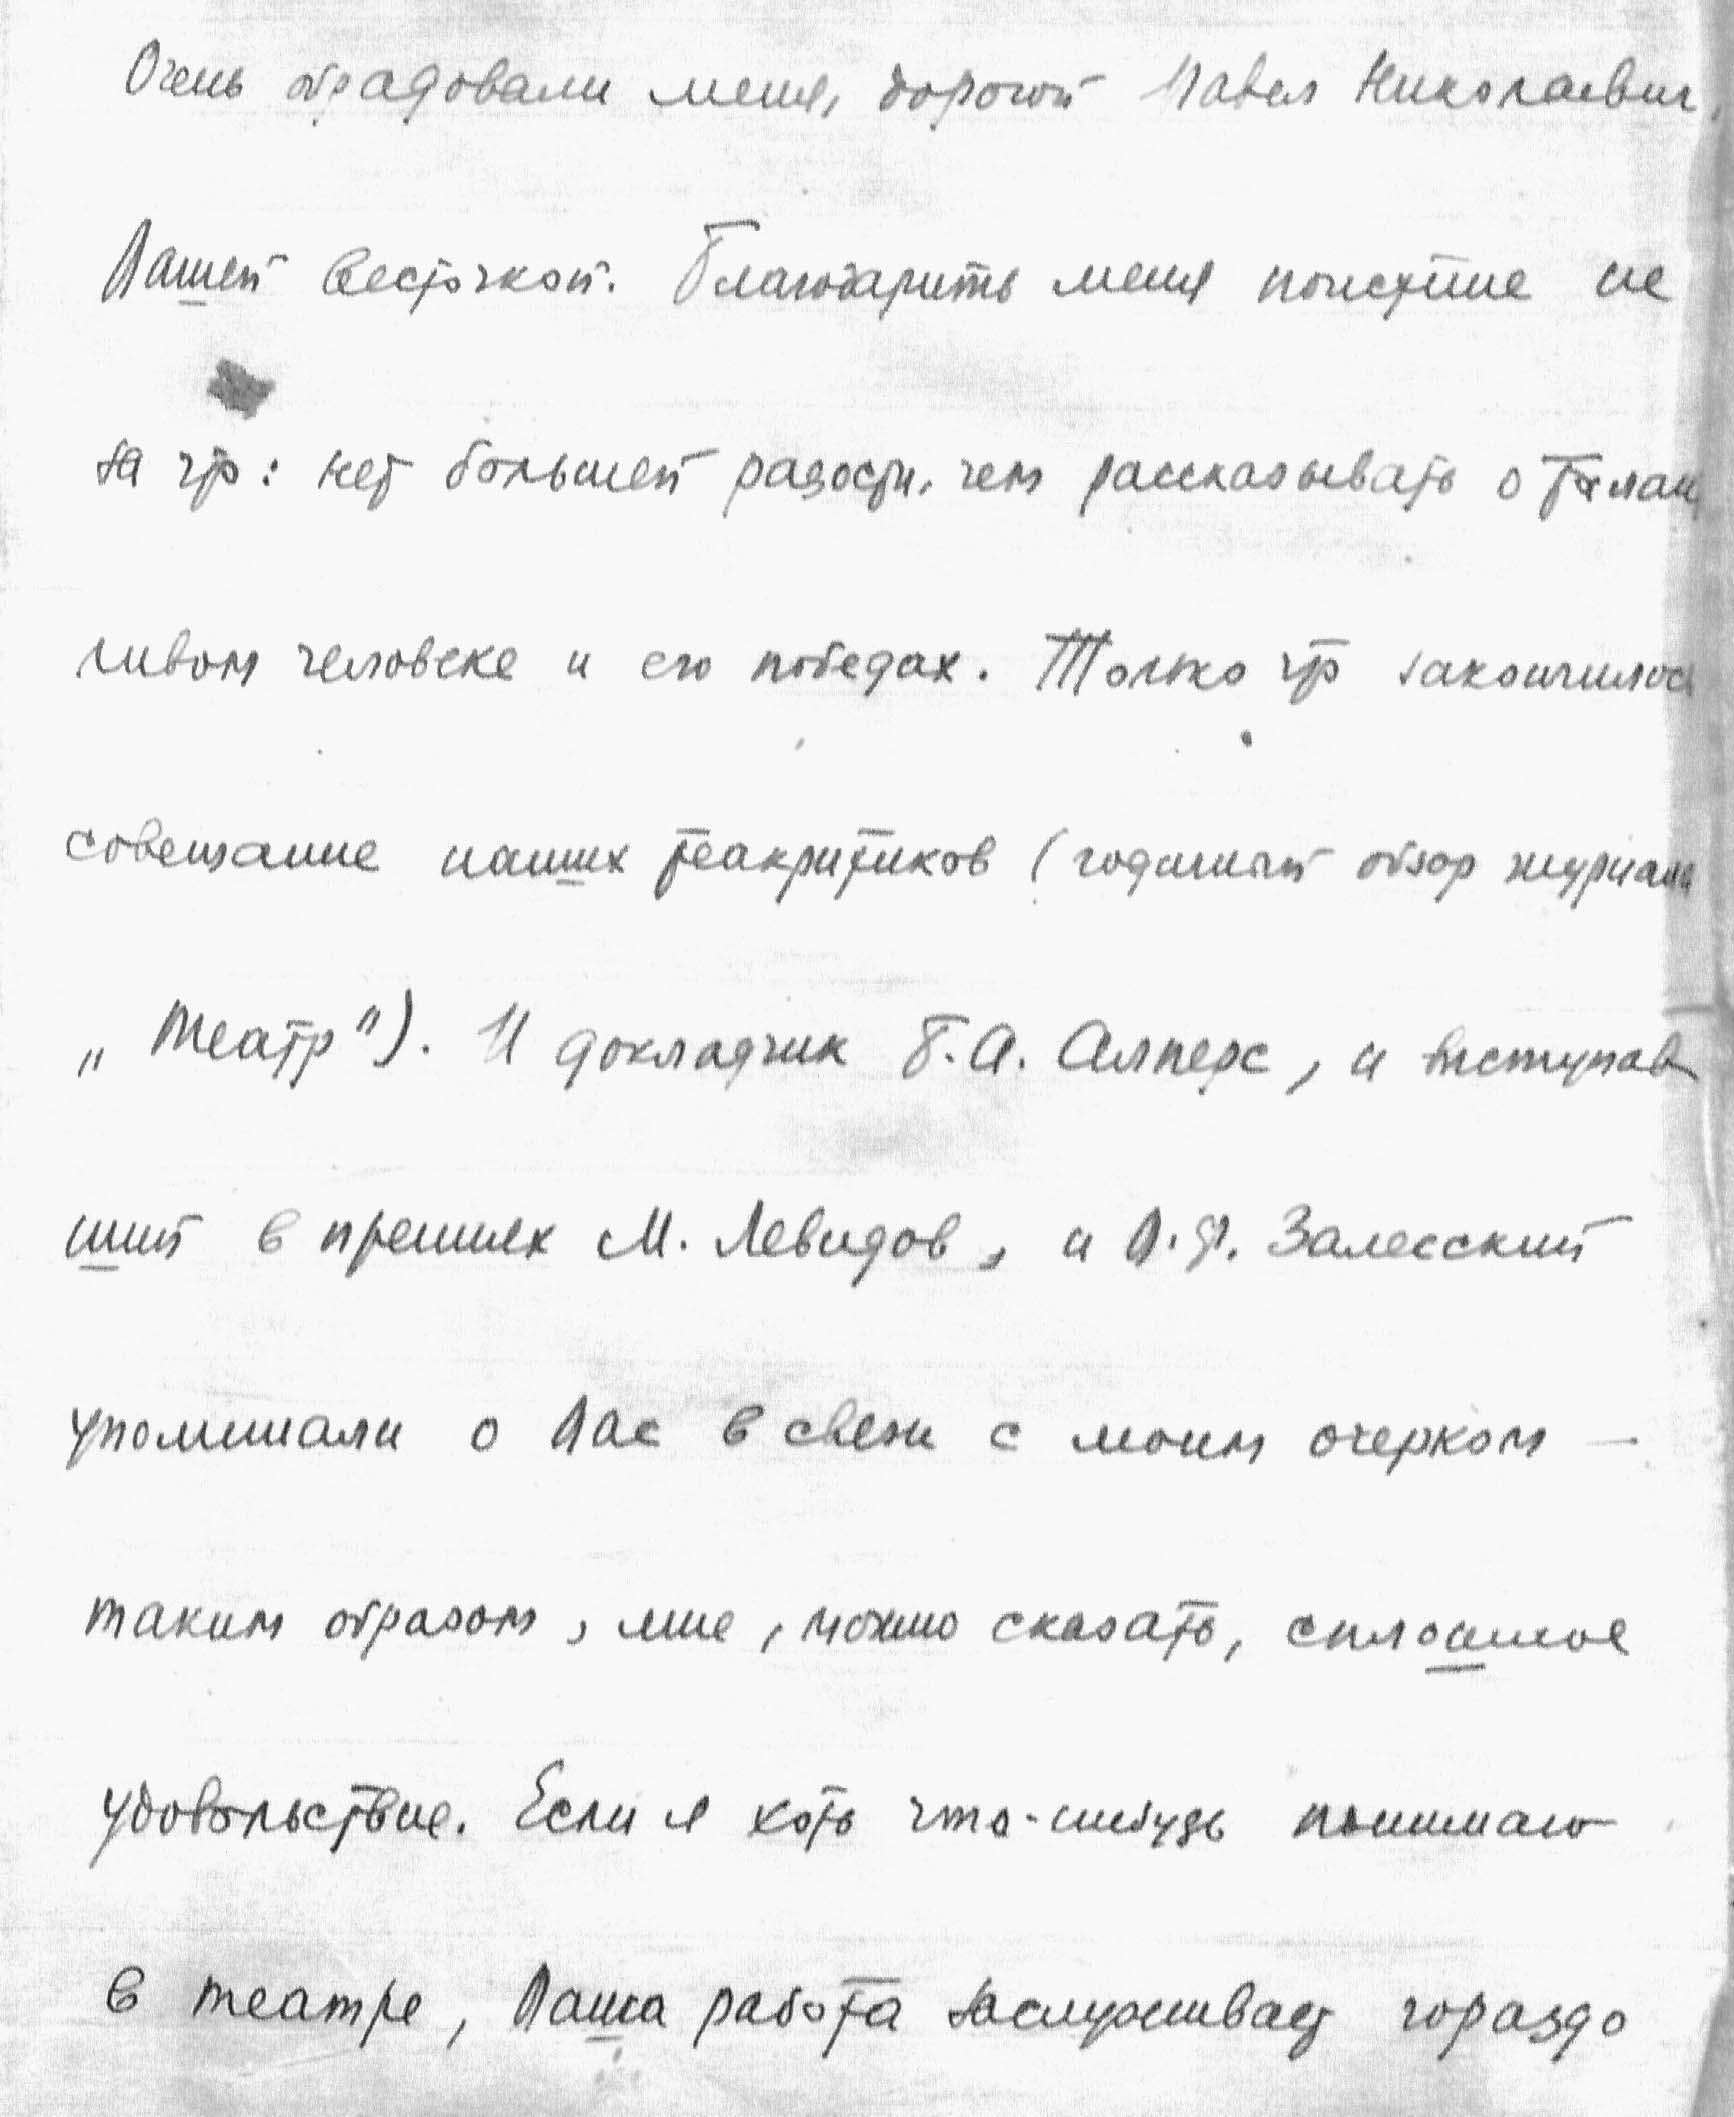 Очень обрадовали меня, дорогой Павел Николаевич,
Вашей весточкой. Благодарить меня поистине не
за что: нет большей радости, чем рассказывать о талант
ливом человеке и его победах. Только что закончилось
совещание наших теакритиков (годичный обзор журнала
„Театр"). И докладчик Б. А. Алперс, и выступав
ший в прениях М. Левидов, и В. Ф. Залесский
упоминали о Вас в связи с моим очерком —
таким образом, мне, можно сказать, сплошное
удовольствие. Если я хоть что-нибудь понимаю
в театре, Ваша работа заслуживает гораздо